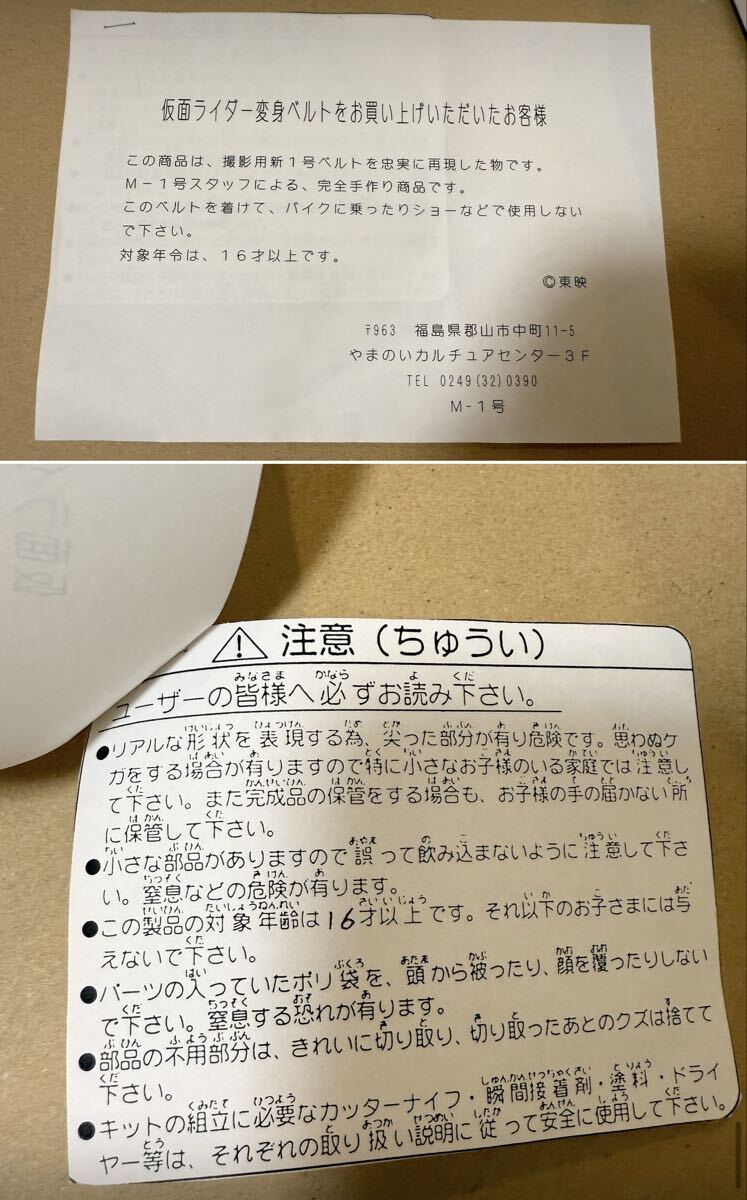 仮面ライダー変身ベルトをお買い上げいただいたお客様
この商品は、撮影用新1号ベルトを忠実に再現した物です。
M-1号スタッフによる、完全手作り商品です。
このベルトを着けて、バイクに乗ったりショーなどで使用しない
で下さい。
対象年令は、16才以上です。
©東映
〒963 福島県郡山市中町11-5
やまのいカルチュアセンター3F
TEL 0249(32)0390
M-1号
注意(ちゅうい)
ユーザーの皆様へ必ずお読み下さい。
●リアルな形状を表現する為、尖った部分が有り危険です。思わぬケ
ガをする場合が有りますので特に小さなお子様のいる家庭では注意し
て下さい。また完成品の保管をする場合も、お子様の手の届かない所
に保管して下さい。
●小さな部品がありますので誤って飲み込まないように注意して下さ
い。窒息などの危険が有ります。
●この製品の対象年齢は16才以上です。それ以下のお子さまには与
えないで下さい。
●パーツの入っていたポリ袋を、頭から被ったり、顔を覆ったりしない
で下さい。窒息する恐れが有ります。
●部品の不用部分は、きれいに切り取り、切り取ったあとのクズは捨てて
下さい。
●キットの組立に必要なカッターナイフ・瞬間接着剤・塗料・ドライ
ヤー等は、それぞれの取り扱い説明に従って安全に使用して下さい。